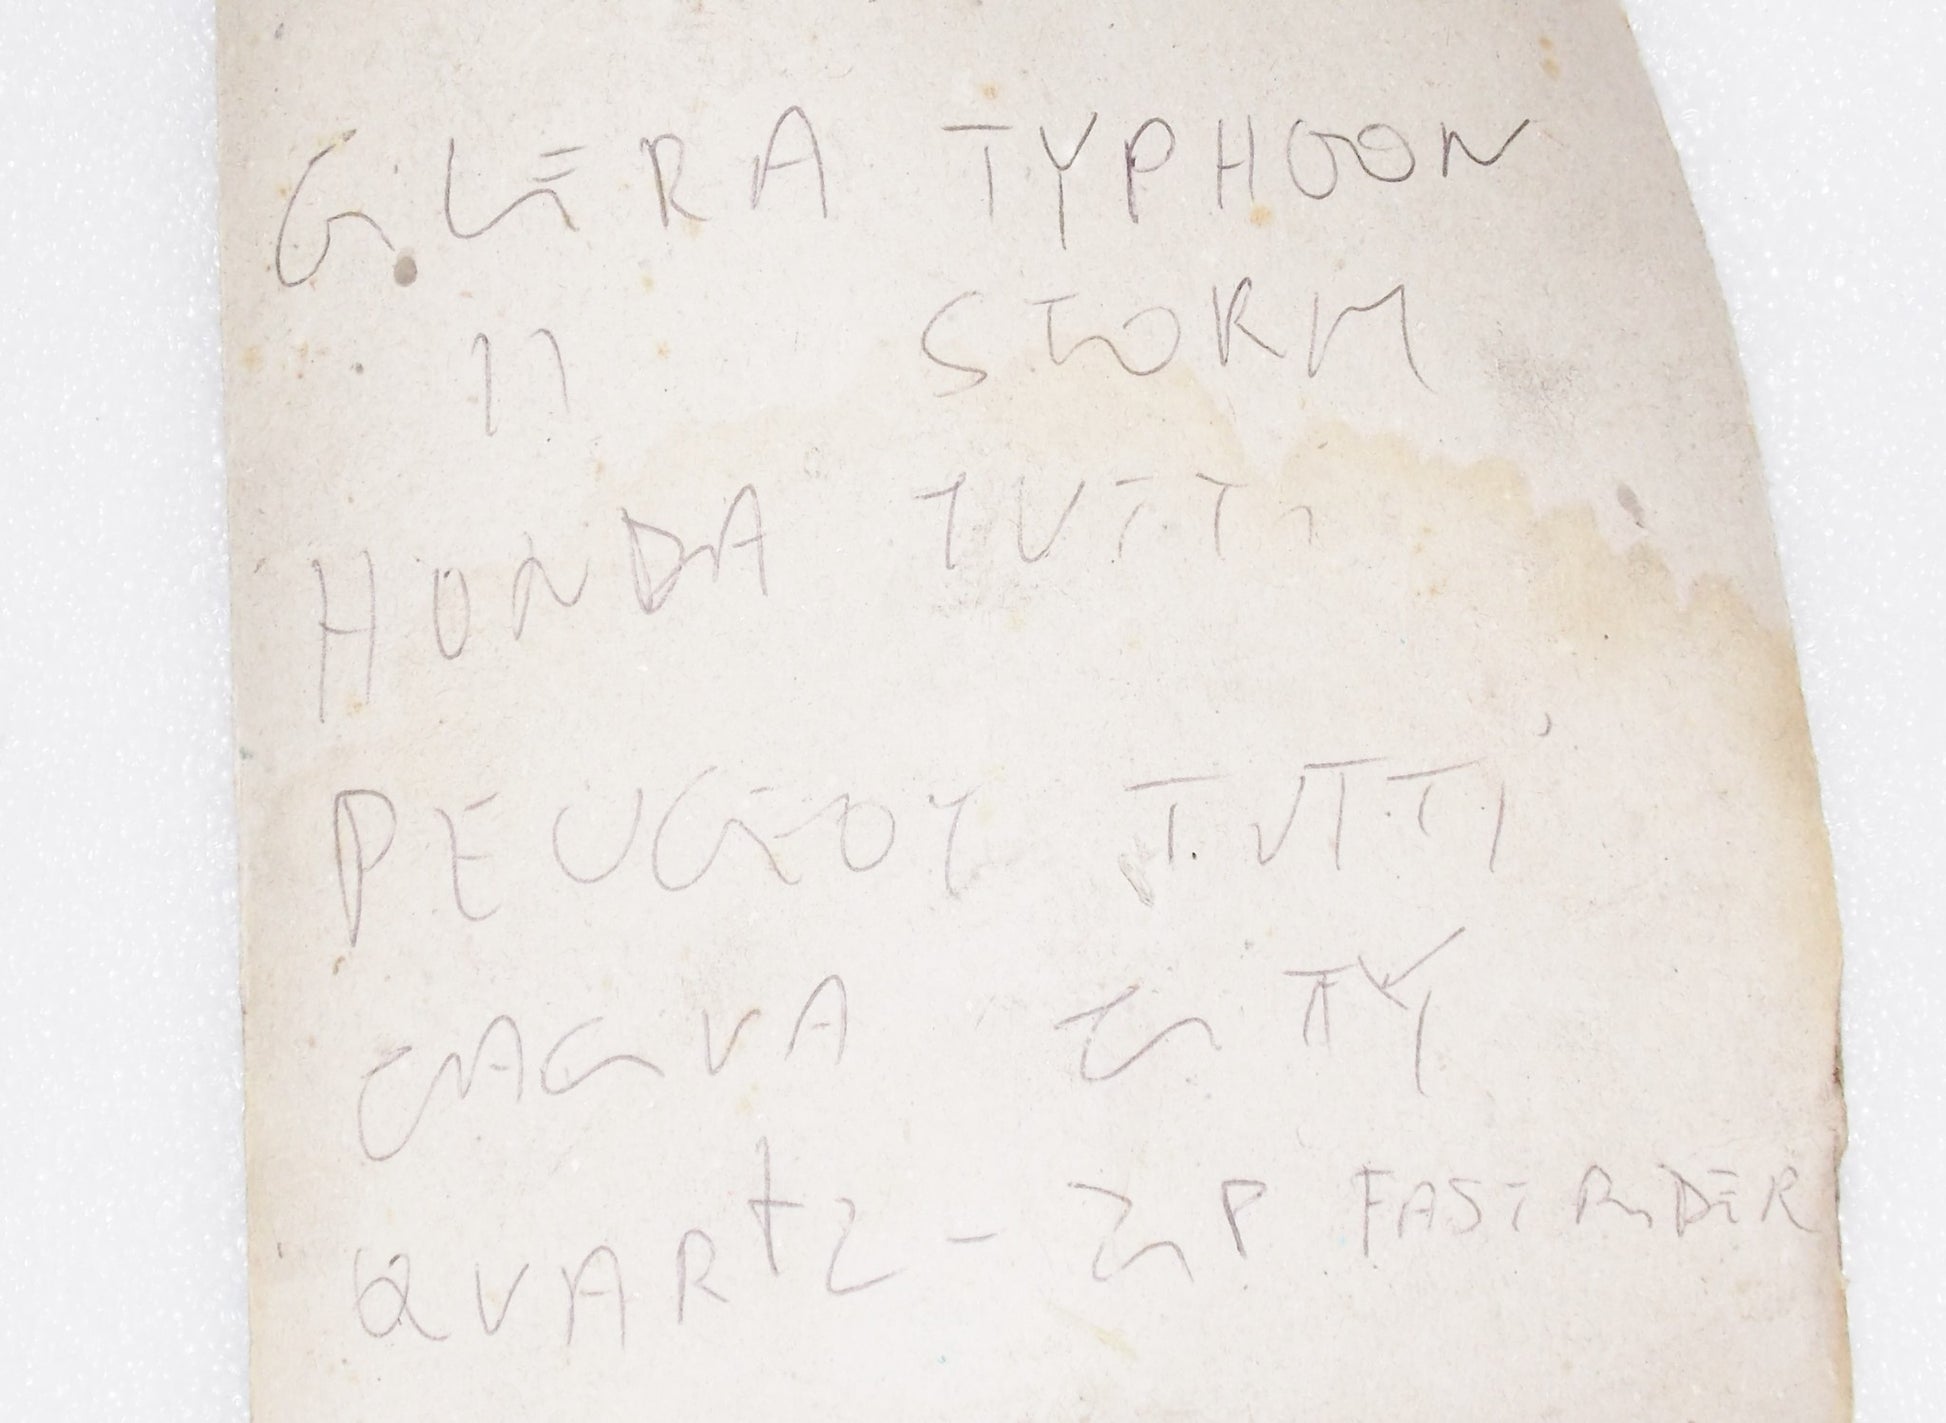 GILERA TYPHOON
11 STORM
HONDA TUTTI
PEUGEOT TUTTI
CAGIVA CITY
QUARTZ - ZIP FAST RIDER